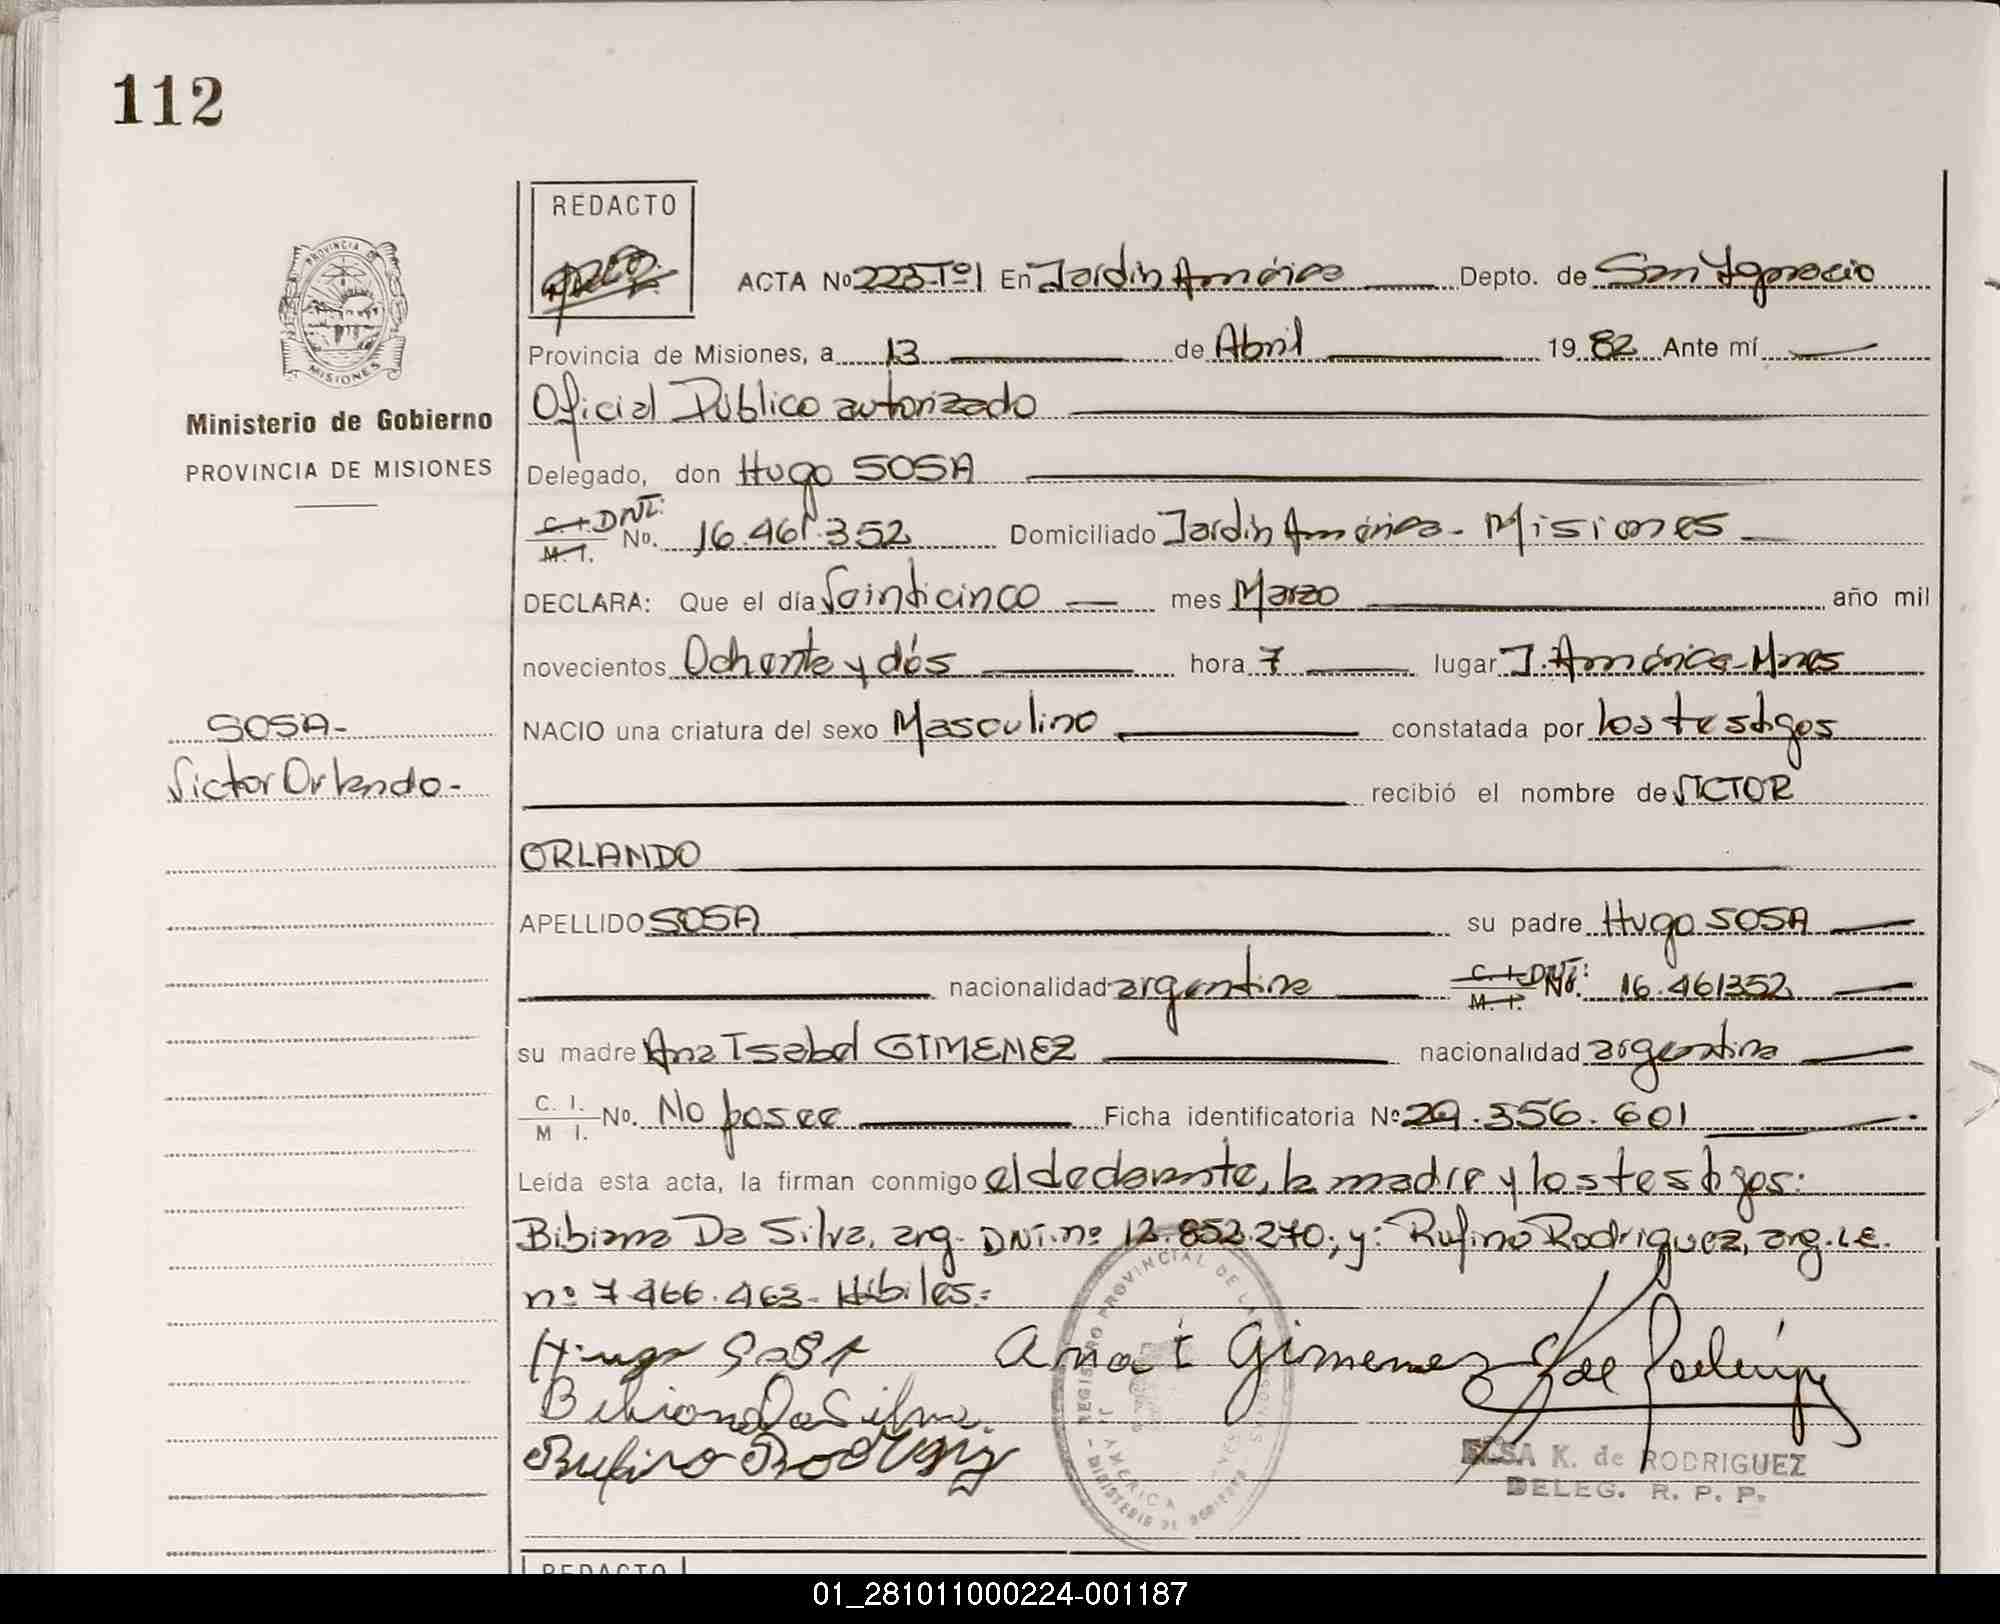 112
REDACTO
ACTA No 223-Tº1 En Jardín América Depto. de San Ignacio
PROVINCIA DE
MISIONES
Provincia de Misiones, a 13 de Abril 19 82 Ante mí
Ministerio de Gobierno
PROVINCIA DE MISIONES
Oficial Público autorizado
Delegado, don Hugo SOSA
C. I. DNI:
M. I. No. 16.461.352 Domiciliado Jardín América - Misiones
DECLARA: Que el día Veinticinco mes Marzo año mil
novecientos Ochenta y dós hora 7 lugar J. América-Mnes
SOSA-
Victor Orlando-
NACIO una criatura del sexo Masculino constatada por los testigos
recibió el nombre de VICTOR
ORLANDO
APELLIDO SOSA su padre Hugo SOSA
nacionalidad argentina C. I. DNI: M. I. No. 16.461352
su madre Ana Isabel GIMENEZ nacionalidad argentina
C. I.
M I. No. No posee Ficha identificatoria Nº 29.356.601
Leída esta acta, la firman conmigo el declarante, la madre y los testigos:
Bibiana Da Silva, arg. DNI. nº 12.852.270; y: Rufino Rodriguez, arg. L.E.
nº 7.466.463- Hábiles:
Hugo Sosa Ana I Gimenez
Bibiana Da Silva
Rufino Rodriguez
REGISTRO PROVINCIAL DE LAS PERSONAS
J. AMERICA
MINISTERIO DE GOBIERNO
ELSA K. de RODRIGUEZ
DELEG. R. P. P.
REDACTO
01_281011000224-001187